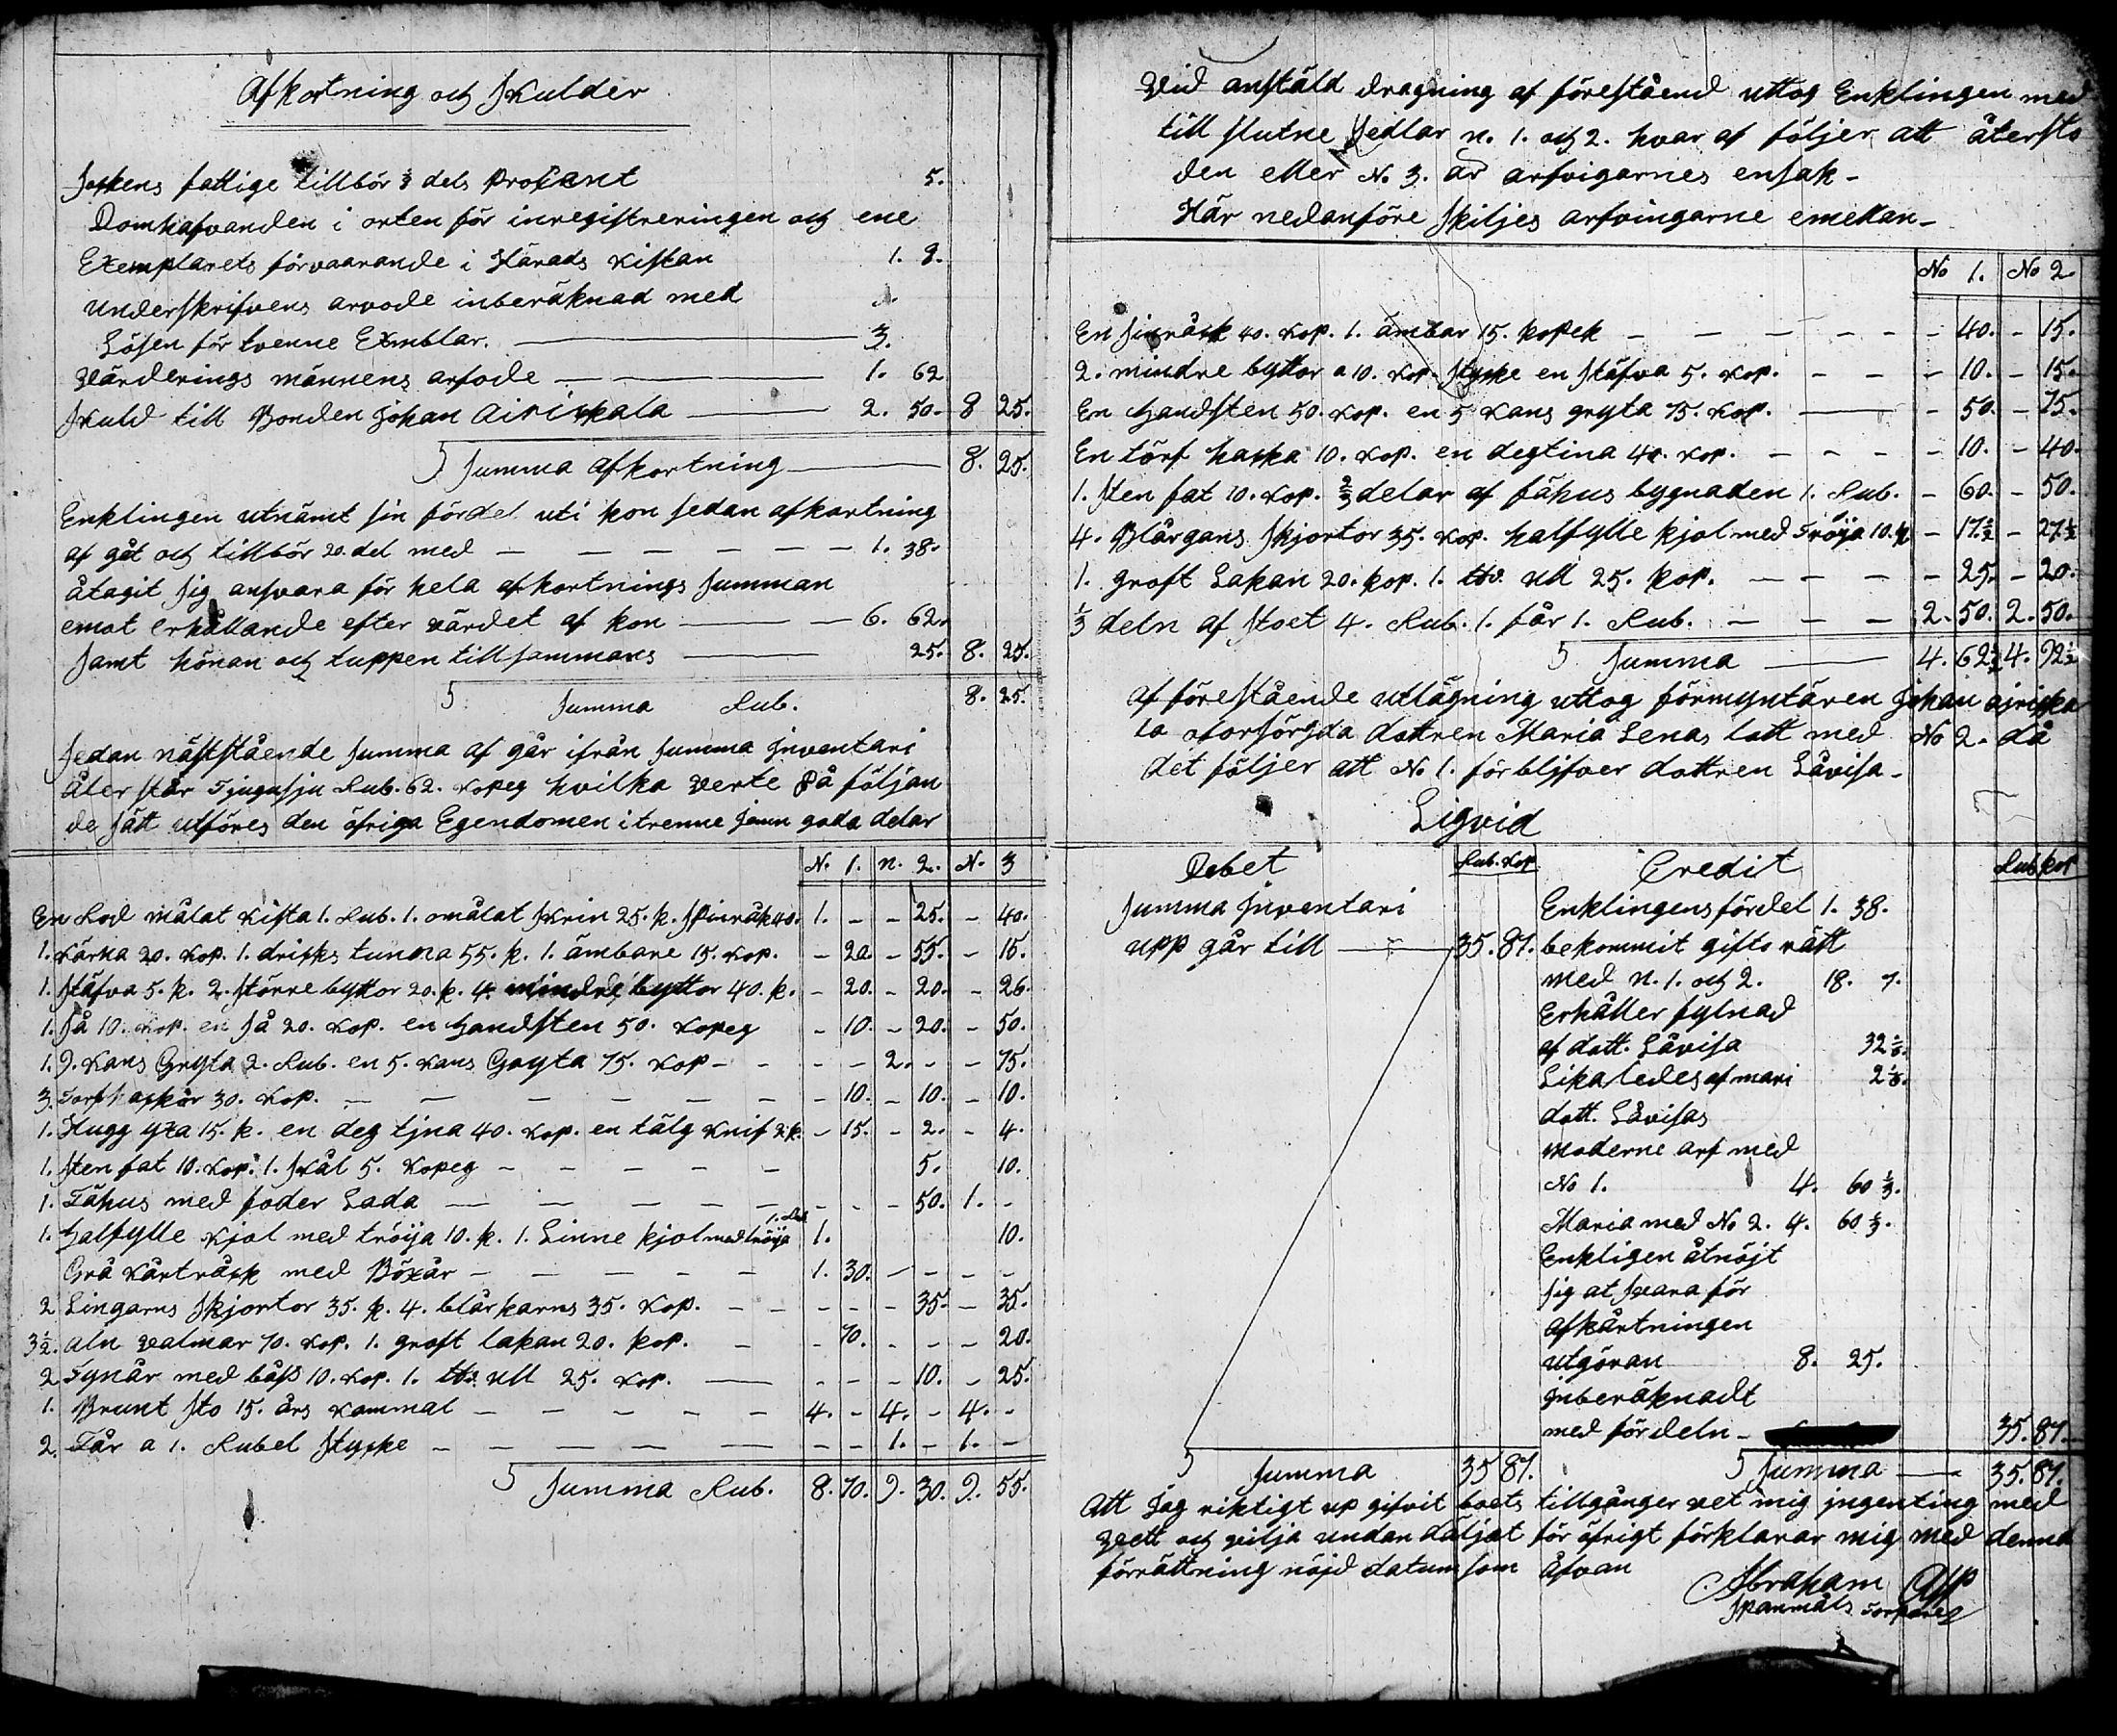 Afkortning och Skulder
Sockens fattige tillbör dels Procent 5.
Domhafvanden i orten för inregistreringen och ene
Exemplarets förvaarande i Härads kistan 1. 8.
Underskrifvens arvode inberäknad med
Lösen för tvenne Exmblar. — 3.
Värderings männens arfode — 1. 62
Skuld till Bonden Johan Airikkala — 2. 50. 8 25.
Summa afkortning — 8. 25.
Enklingen utnämt sin fördel uti kon sedan afkortning
af gåt och tillbör 20. del med — — — — — — 1. 38.
åtagit sig ansvara för hela afkortnings Summan
emot erhållande efter värdet af kon — — 6. 62.
Samt hönan och tuppen till sammans — 25. 8. 25.
Summa Rub. 8. 25.
Sedan näststående Summa af går ifrån Summa Inventari
åter står Tjugusju Rub. 62. kopeg hvilka verte På följan
de sätt utföres den öfriga Egendomen i trenne jemn goda delar
N. 1. n. 2. N. 3
En Röd målat kista 1. Rub. 1. omålat Skrin 25. k. Spinråk 40. 1. - - 25. - 40.
1. Kärna 20. kop. 1. dricks tunna 55. k. 1. ämbare 15. kop. - 20. - 55. - 15.
1. Stäfva 5. k. 2. större byttor 20. k. 4. mindre byttor 40. k. - 20. - 20. - 26.
1. Så 10. kop. en så 20. kop. en Handsten 50. kopeg - 10. - 20. - 50.
1. 9. kans Gryta 2. Rub. en 5. kans Gryta 75. kop - - - - 2. - - 75.
3. Torfhaskor 30. kop. — — — — — - 10. - 10. - 10.
1. Hugg yxa 15. k. en deg tjna 40. kop. en tälg knif 2 k. - 15. - 2. - 4.
1. Sten fat 10. kop. 1. Skål 5. kopeg - - - - - 5. 10.
1. Fähus med foder Lada — — — — - - - 50. 1. -
1. Halfylle kjol med tröija 10. k. 1. Linne kjol med tröija 1. 10.
Grå kårträsk med Böxår - - - - - 1. 30. - - - -
2 Lingarns Skjortor 35. k. 4. blårkarns 35. kop. - - - - - 35. - 35.
3½. aln valmar 70. kop. 1. groft lakan 20. kop. - - 70. - - - 20.
2 Tynår med båss 10. kop. 1. ull 25. kop. — - - - 10. - 25.
1. Brunt Sto 15. års kammal - - - - - 4. - 4. - 4. -
2. Får a 1. Rubel Stycke - — — — — - - 1. - 1. -
Summa Rub. 8. 70. 9. 30. 9. 55.
Vid anstäld dragning af förestående uttog Enklingen med
till slutne Sedlar n. 1. och 2. hvar af följer att återsto
den eller No 3. är arfvigarnes ensak -
Här nedanföre skiljes arfvingarne emellan -
No 1. No 2.
En 40. kop. 1. ämbar 15. kopek — — — — - 40. - 15.
2. mindre byttor a 10. kop. stycke en Stäfva 5. kop. - - - 10. - 15.
En Handsten 50. kop. en 5 kans gryta 75. kop. — - 50. - 75.
En törf haska 10. kop. en degtina 40. kop. - - - - 10. - 40.
1. Sten fat 10. kop. ⅔ delar af fähus bygnaden 1. Rub. - 60. - 50.
4. Blårgans Skjortor 35. kop. halfylle kjol med Tröija 10. k - 17.½ - 27.½
1. groft Lakan 20. kop. 1. ull 25. kop. — - - - 25. - 20.
⅓ deln af stoet 4. Rub. 1. får 1. Rub. - - - 2. 50. 2. 50.
Summa — 4. 62½ 4. 92½
af förestående utlägning uttog förmyntären Johan ajrikka
la oforsörgda dottren Maria Lenas lott med No 2. då
det följer att No 1. förblifver dottren Låvisa -
Liqvid
Debet Rub. kop Credit Rub kop
Summa Inventari Enklingens fördel 1. 38.
upp går till — 35. 87. bekommit gifto rätt
med n. 1. och 2. 18. 7.
Erhåller fylnad
af dott. Låvisa 32
Lika ledes af mari 2
dott. Låvisas
moderne arf med
No 1. 4. 60 ⅓.
Maria med No 2. 4. 60 ⅓.
Enkligen åtnöjt
sig at svara för
afkårtningen
utgöran 8. 25.
Inberäknadt
med fördeln - 35. 87.
Summa 35 87. Summa — 35. 87.
Att Jag riktigt up gifvit boets tillgånger vet mig ingenting med
vett och vilja undan döljat för öfrigt förklarar mig med denna
förrättning nöjd datum som åfvan
Abraham
Spanmåls Torpare